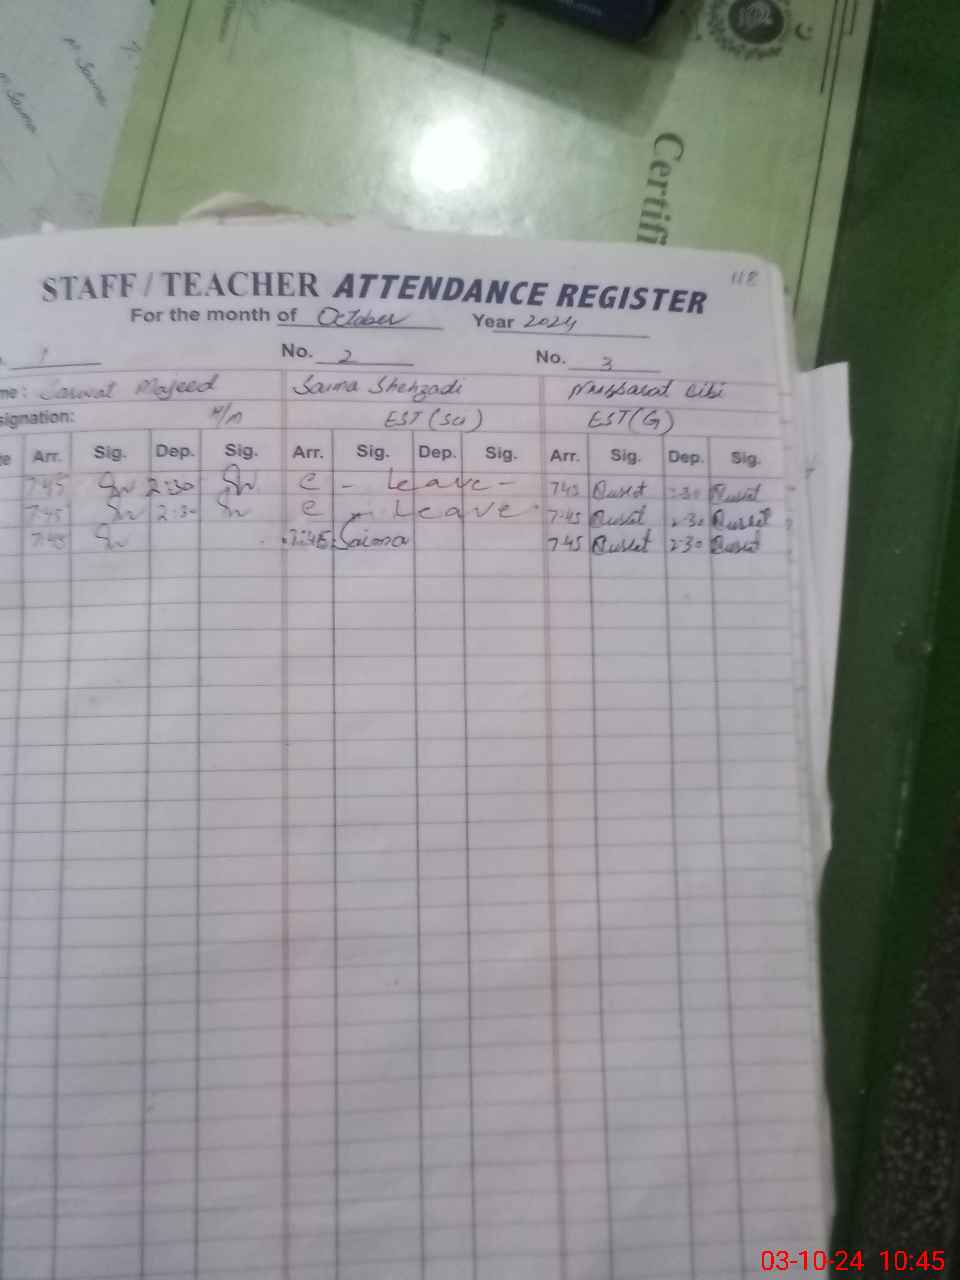 Certifi
118
STAFF / TEACHER ATTENDANCE REGISTER
For the month of October Year 2024
1 No. 2 No. 3
me: Sarwat Majeed Saima Shehzadi Mussarat Bibi
signation: H/M EST (Sci) EST (G)
te Arr. Sig. Dep. Sig. Arr. Sig. Dep. Sig. Arr. Sig. Dep. Sig.
7:45 2:30 C - Leave - 7:45 2:30
7:45 2:30 C - Leave - 7:45 2:30
7:45 7:45 Saima 7:45 2:30
03-10-24 10:45